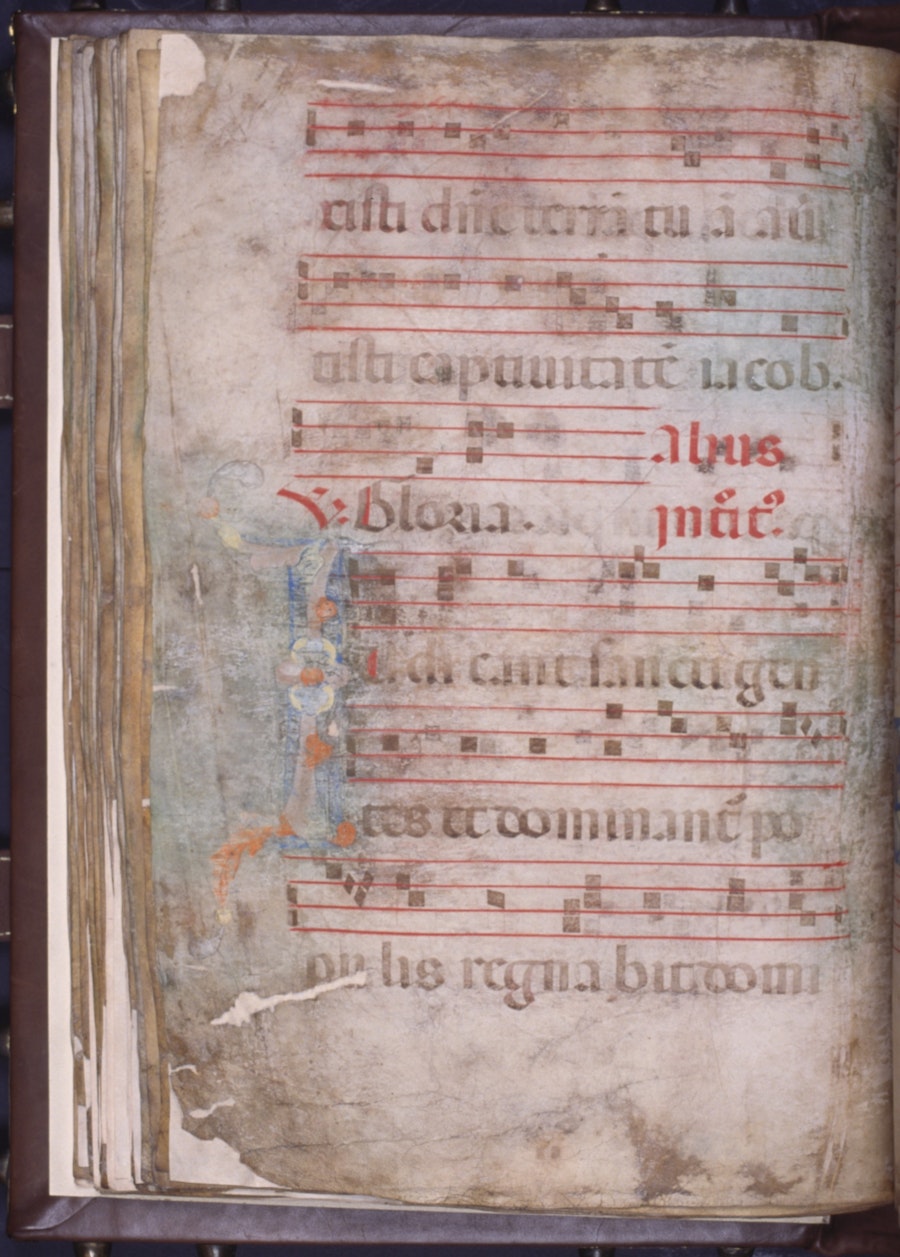 xisti dñe terrã tuã auer
tisti captiuitatẽ iacob.
Alius
℣. Gloria. intrõit9.
Iudicant sancti gen
tes et dominant̃ po
pulis regnabit domi